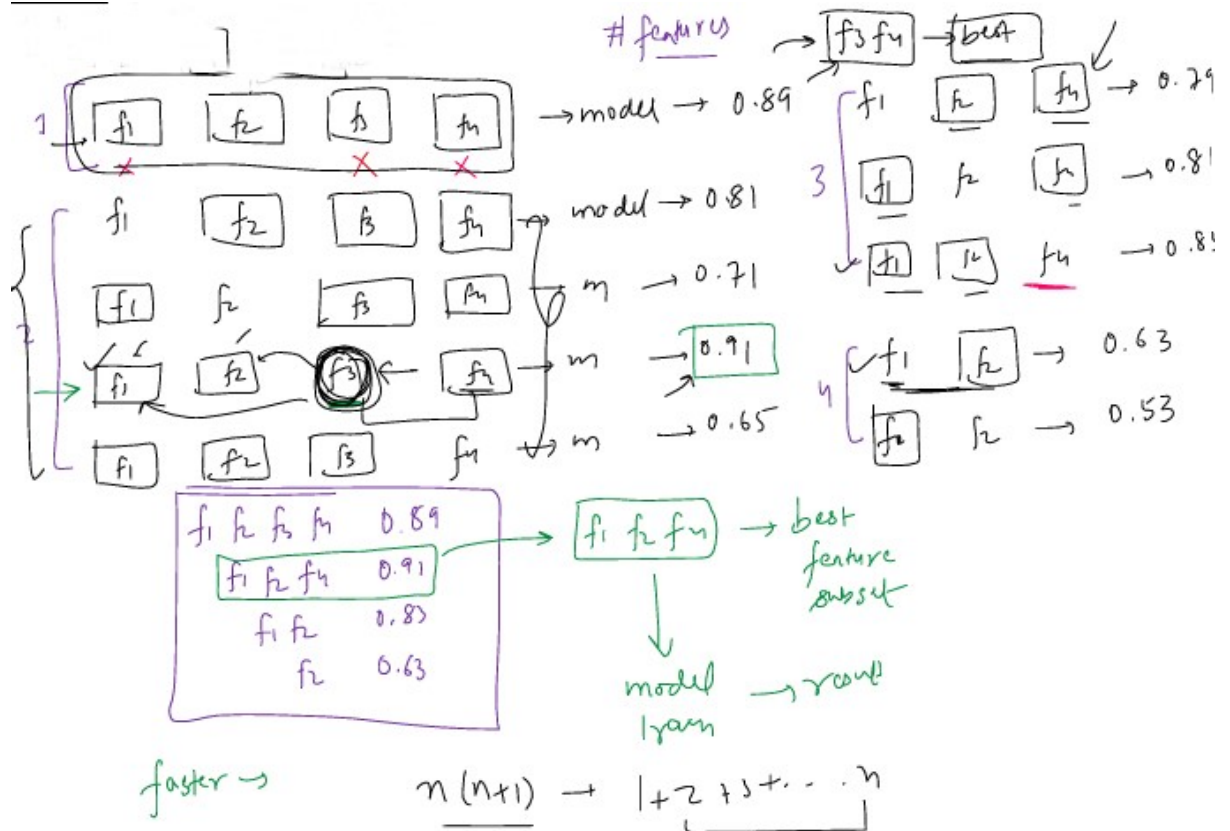 # features
f3 f4 → best
1
f1 f2 f3 f4 → model → 0.89
f1 f2 f3 f4 → model → 0.81
f1 f2 f3 f4 → m → 0.71
2
f1 f2 f3 f4 → m → 0.91
f1 f2 f3 f4 → m → 0.65
f1 f2 f4 → 0.79
3
f1 f2 f4 → 0.81
f1 f2 f4 → 0.8
4
f1 f2 → 0.63
f2 → 0.53
f1 f2 f3 f4 0.89
f1 f2 f4 0.91
f1 f2 0.83
f2 0.63
f1 f2 f4 → best
feature
subset
model → 
train
faster →
n(n+1) → 1+2+3+... n